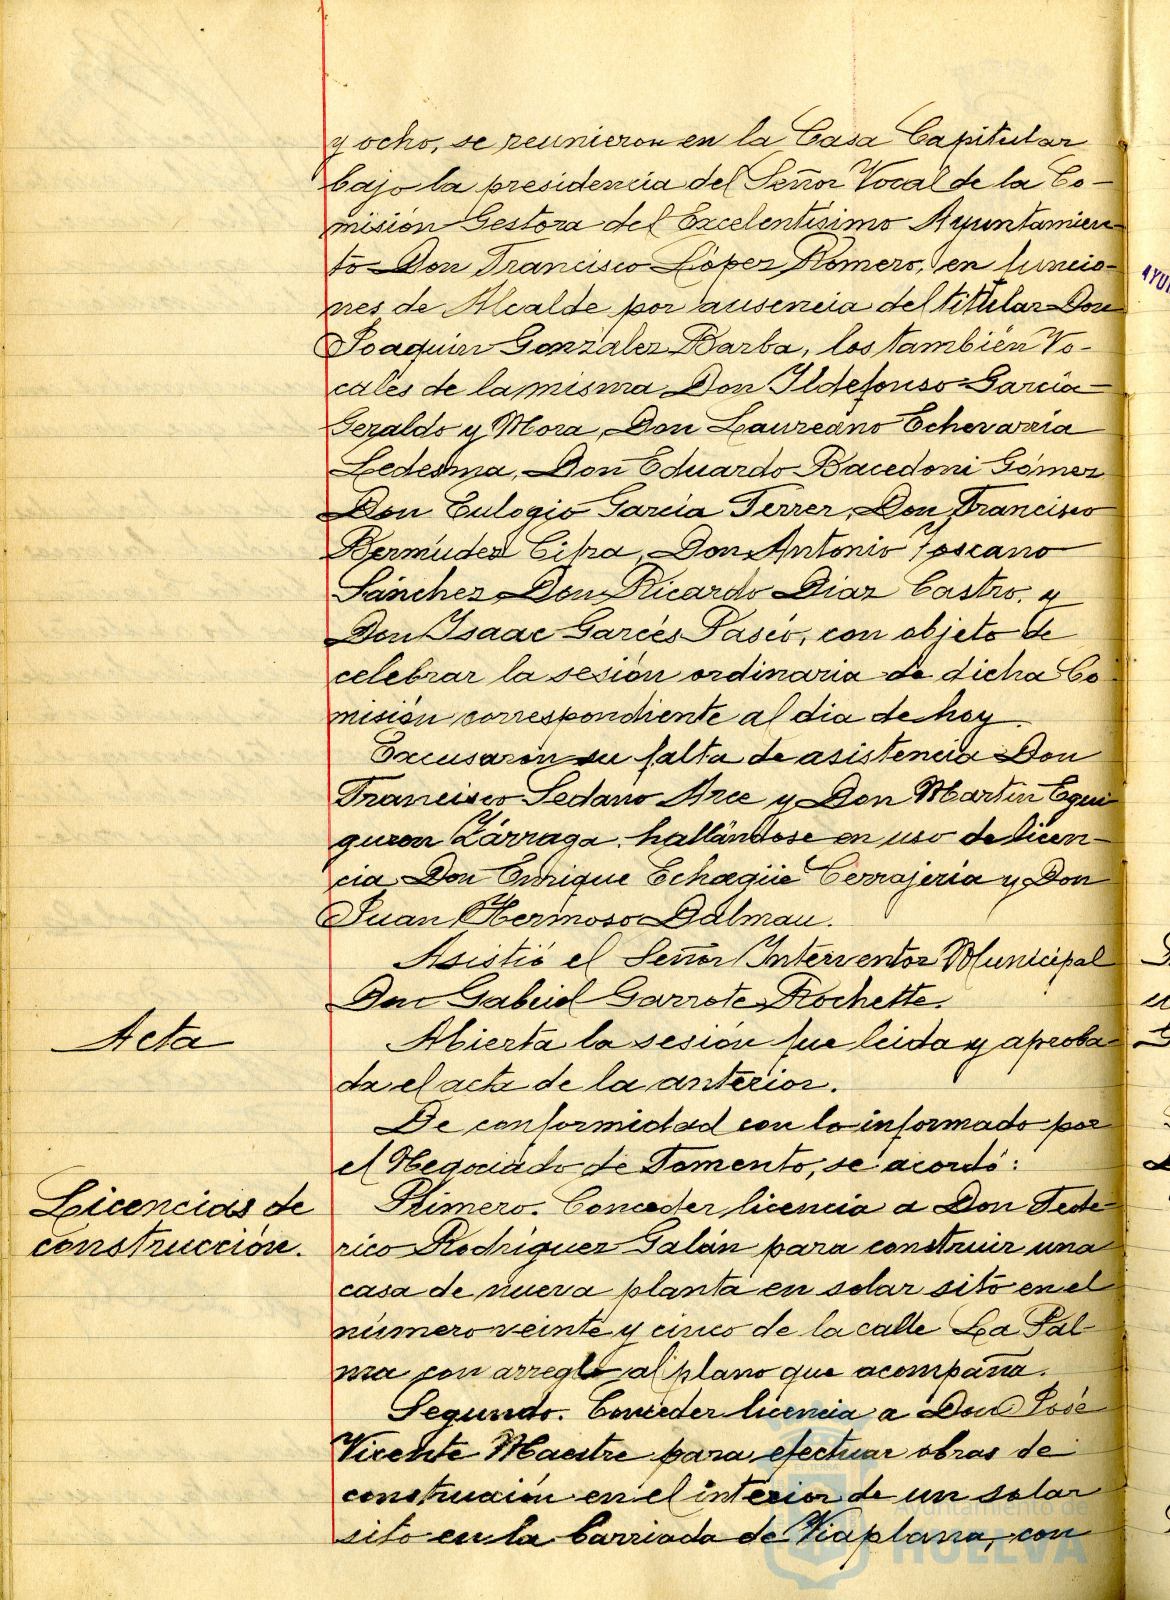 y ocho, se reunieron en la Casa Capitular
bajo la presidencia del Señor Vocal de la Co-
misión Gestora del Excelentísimo Ayuntamien-
to Don Francisco López Romero, en funcio-
nes de Alcalde por ausencia del titular Don
Joaquin González Barba, los también Vo-
cales de la misma Don Ildefonso García
Geraldo y Mora, Don Laureano Echevarria
Ledesma, Don Eduardo Bacedoni Gómez
Don Eulogio García Ferrer, Don Francisco
Bermudez Don Antonio Toscano
Sánchez Don Ricardo Diaz Castro, y
Don Isaac Garcés Paseo, con objeto de
celebrar la sesión ordinaria de dicha Co
misión correspondiente al dia de hoy.
Excusaron su falta de asistencia Don
Francisco Sedano Arce y Don Martin Egui
guren Zárraga, hallándose en uso de licen-
cia Don Enrique Echagüe Cerrajeria y Don
Juan Hermoso Dalmau.
Asistió el Señor Interventor Municipal
Don Gabriel Garrote Rochette.
Acta
Abierta la sesión fue leida y aproba-
da el acta de la anterior.
De conformidad con lo informado por
el Negociado de Fomento, se acordó:
Licencias de
construcción.
Primero. Conceder licencia a Don Fede-
rico Rodriguez Galán para construir una
casa de nueva planta en solar sito en el
número veinte y cinco de la calle La Pal-
ma con arreglo al plano que acompaña.
Segundo. Conceder licencia a Don José
Vicente Maestre para efectuar obras de
construción en el interior de un solar
sito en la barriada de Viaplana, con
Ayuntamiento de
HUELVA
AYU